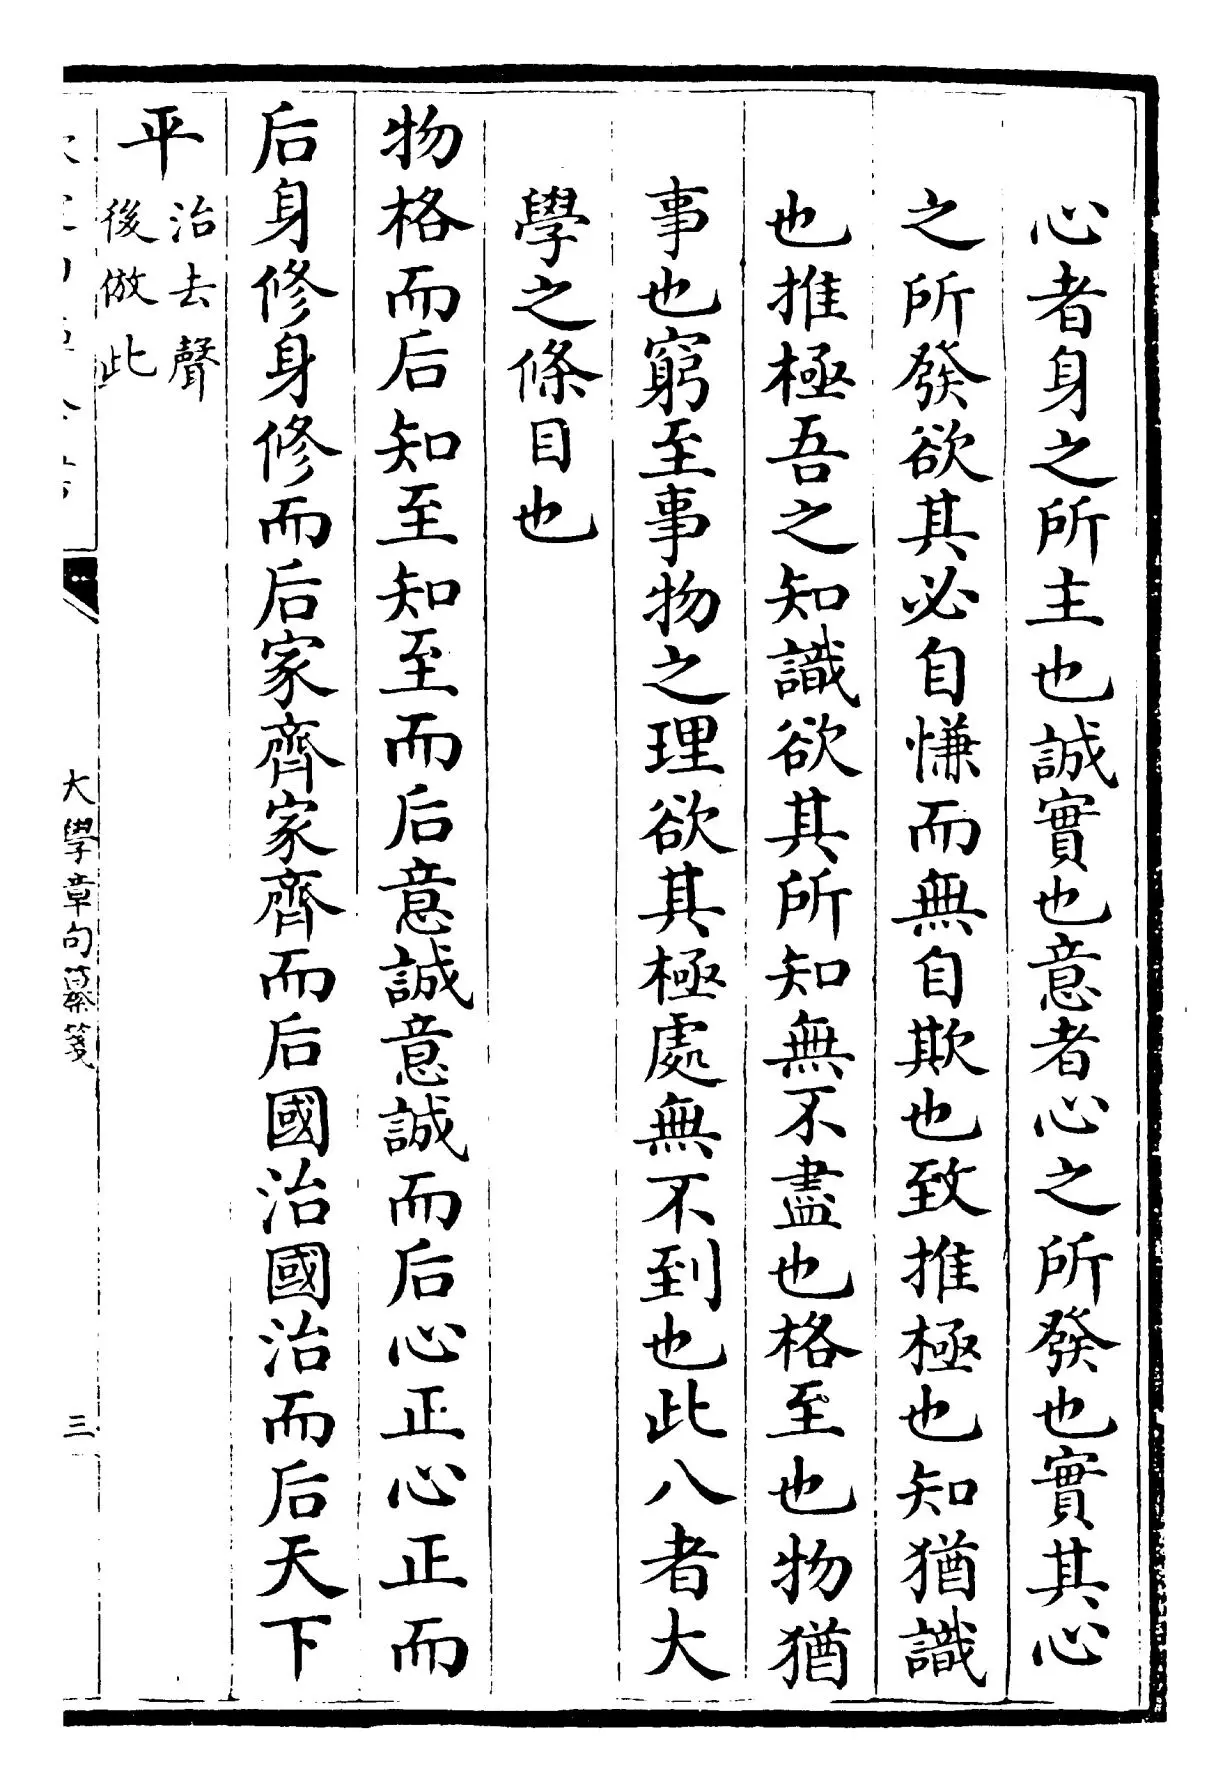 心者身之所主也誠實也意者心之所發也實其心
之所發欲其必自慊而無自欺也致推極也知猶識
也推極吾之知識欲其所知無不盡也格至也物猶
事也窮至事物之理欲其極處無不到也此八者大
學之條目也
物格而后知至知至而后意誠意誠而后心正心正而
后身修身修而后家齊家齊而后國治國治而后天下
平
治去聲
後倣此
大學章句纂箋
三